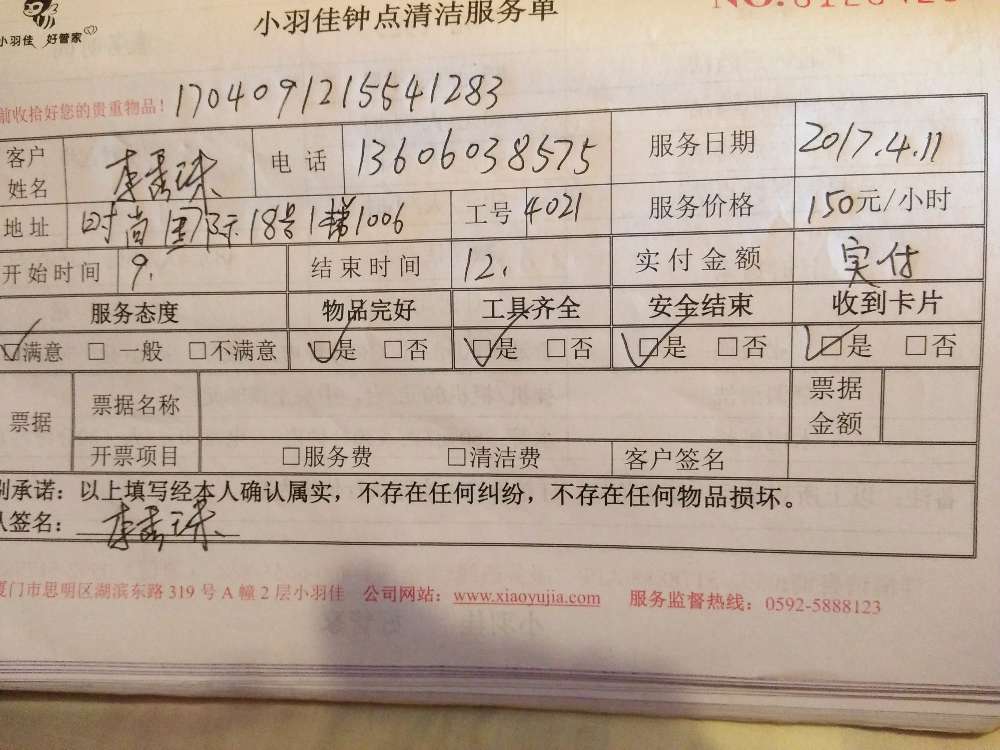 小羽佳 好管家
小羽佳钟点清洁服务单
前收拾好您的贵重物品! 1704091215541283
客户姓名 李秀珠 电话 13606038575 服务日期 2017.4.11
地址 时尚国际18号1梯1006 工号 4021 服务价格 150元/小时
开始时间 9. 结束时间 12. 实付金额 实付
服务态度 物品完好 工具齐全 安全结束 收到卡片
☑满意 □一般 □不满意 ☑是 □否 ☑是 □否 ☑是 □否 ☑是 □否
票据 票据名称 票据金额
开票项目 □服务费 □清洁费 客户签名
别承诺：以上填写经本人确认属实，不存在任何纠纷，不存在任何物品损坏。
人签名： 李秀珠
厦门市思明区湖滨东路 319 号 A 幢 2 层小羽佳 公司网站：www.xiaoyujia.com 服务监督热线：0592-5888123